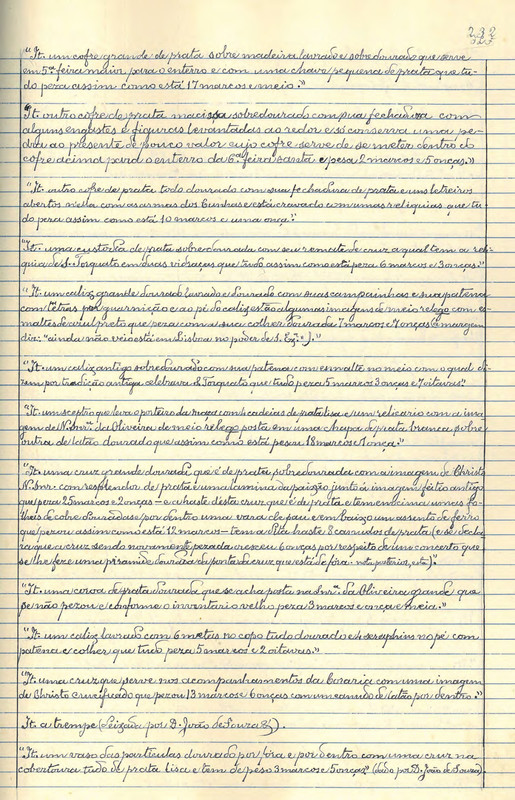 232
"It. um cofre grande de prata sobre madeira lavrado e sobredourado que serve
em 5ª feira maior para o enterro e com uma chave pequena de prata que tu-
do peza assim como está 17 marcos e meio."
It. outro cofre de prata macissa sobredourado com sua fechadura com
alguns engastes e figuras levantadas ao redor e só conserva uma pe-
dra ao presente de pouco valor cujo cofre serve de se meter dentro do
cofre acima para o enterro da 6ª feira santa e peza 2 marcos e 5 onças."
"It. outro cofre de prata todo dourado com sua fechadura de prata e uns letreiros
abertos nella com as armas dos Cunhas e está cravado com umas reliquias que tu-
do peza assim como está 10 marcos e uma onça."
"It. uma custodia de prata sobredourada com seu remate de cruz a qual tem a reli-
quia de S. Torquato em duas vidraças que tudo assim como está peza 6 marcos e 3 onças."
"It. um caliz grande dourado lavrado e dourado com suas campainhas e sua patena
com letras por guarnição e ao pé do caliz estão algumas imagens de meio relego com es-
maltes de azul preto que peza com a sua colher dourada 7 marcos e 7 onças á margem
diz: "ainda não veio está em Lisboa no poder de S. Exª.)."
"It. um caliz antigo sobredourado com sua patena com esmalte no meio com o qual di-
zem por tradição antiga celebrava S. Torquato que tudo peza 5 marcos 3 onças e 7 oitavas."
"It. um sceptro que leva o porteiro da maça com 4 cadeias de prata lisa e um relicario com a ima-
gem de N. Snrª. da Oliveira de meio relego posta em uma chapa de prata branca sobre
outra de latão dourado que assim como está pesou 18 marcos e 1 onça."
"It. uma cruz grande dourada que é de prata sobredourada com a imagem de Christo
N. Snr. com resplendor de prata e uma lamina da paixão junto á imagem feitio antigo
que peza 25 marcos e 2 onças – e a haste desta cruz que é de prata e tem em cima umas fo-
lhas de cobre douradas e por dentro uma vara de pau e em baixo um assento de ferro
que pezou assim como está 12 marcos – tem a dita haste 8 canudos de prata (e se decla-
ra que a cruz sendo novamente pezada cresceu 6 onças por respeito de um concerto que
se lhe fez e uma piramide dourada da ponta da cruz que está de fóra. nota posterior, esta)."
"It. uma coroa de prata dourada que se acha posta na Snrª. da Oliveira grande que
se não pezou e conforme o inventario velho peza 3 marcos e onça e meia."
"It. um caliz lavrado com 6 metas no copo tudo dourado e 4 seraphins no pé com
patena e colher que tudo peza 5 marcos e 2 oitavas."
"It. uma cruz que serve nos acompanhamentos da coraria com uma imagem
de Christo crucificado que pezou 13 marcos e 6 onças com um canudo de latão por dentro."
It. a trempe (deixada por D. João de Souza &).
"It. um vaso das particulas dourado por fóra e por dentro com uma cruz na
cobertoura tudo de prata lisa e tem de peso 3 marcos e 5 onças" (dado por D. João de Souza).